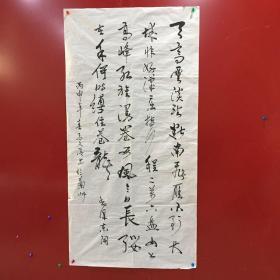 天高雲淡望断南飛雁不到长
城非好漢屈指行程二萬六盘山上
高峰红旗漫卷西風今日長缨
在手何時缚住苍龍
丙申年春